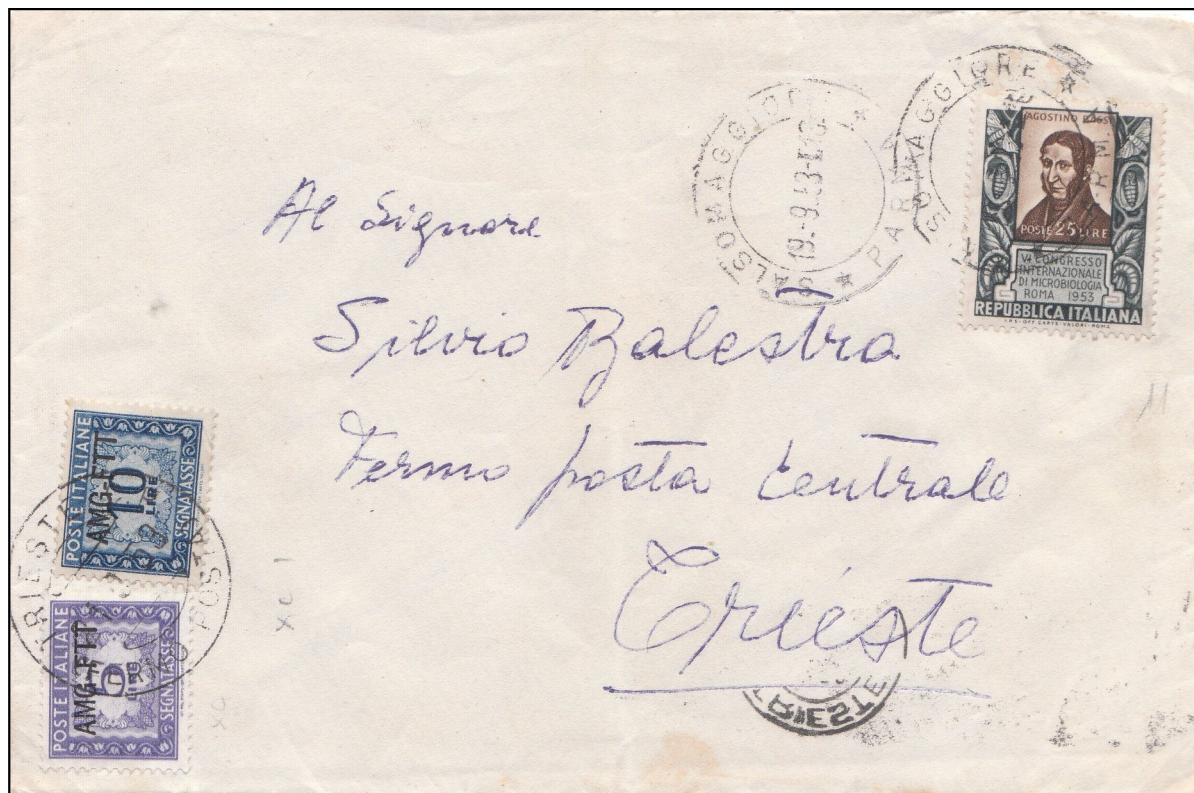 SALSOMAGGIORE ★ PARMA ★
19.-9.53-
AGOSTINO BASSI
POSTE 25 LIRE
VI CONGRESSO
INTERNAZIONALE
DI MICROBIOLOGIA
ROMA 1953
REPUBBLICA ITALIANA
I.P.S.-OFF. CARTE-VALORI-ROMA
Al Signore
Silvio Balestra
Fermo posta Centrale
Trieste
POSTE ITALIANE
AMG-FTT
10
LIRE
SEGNATASSE
POSTE ITALIANE
AMG-FTT
6
LIRE
SEGNATASSE
TRIESTE
FERMO POSTA
TRIESTE